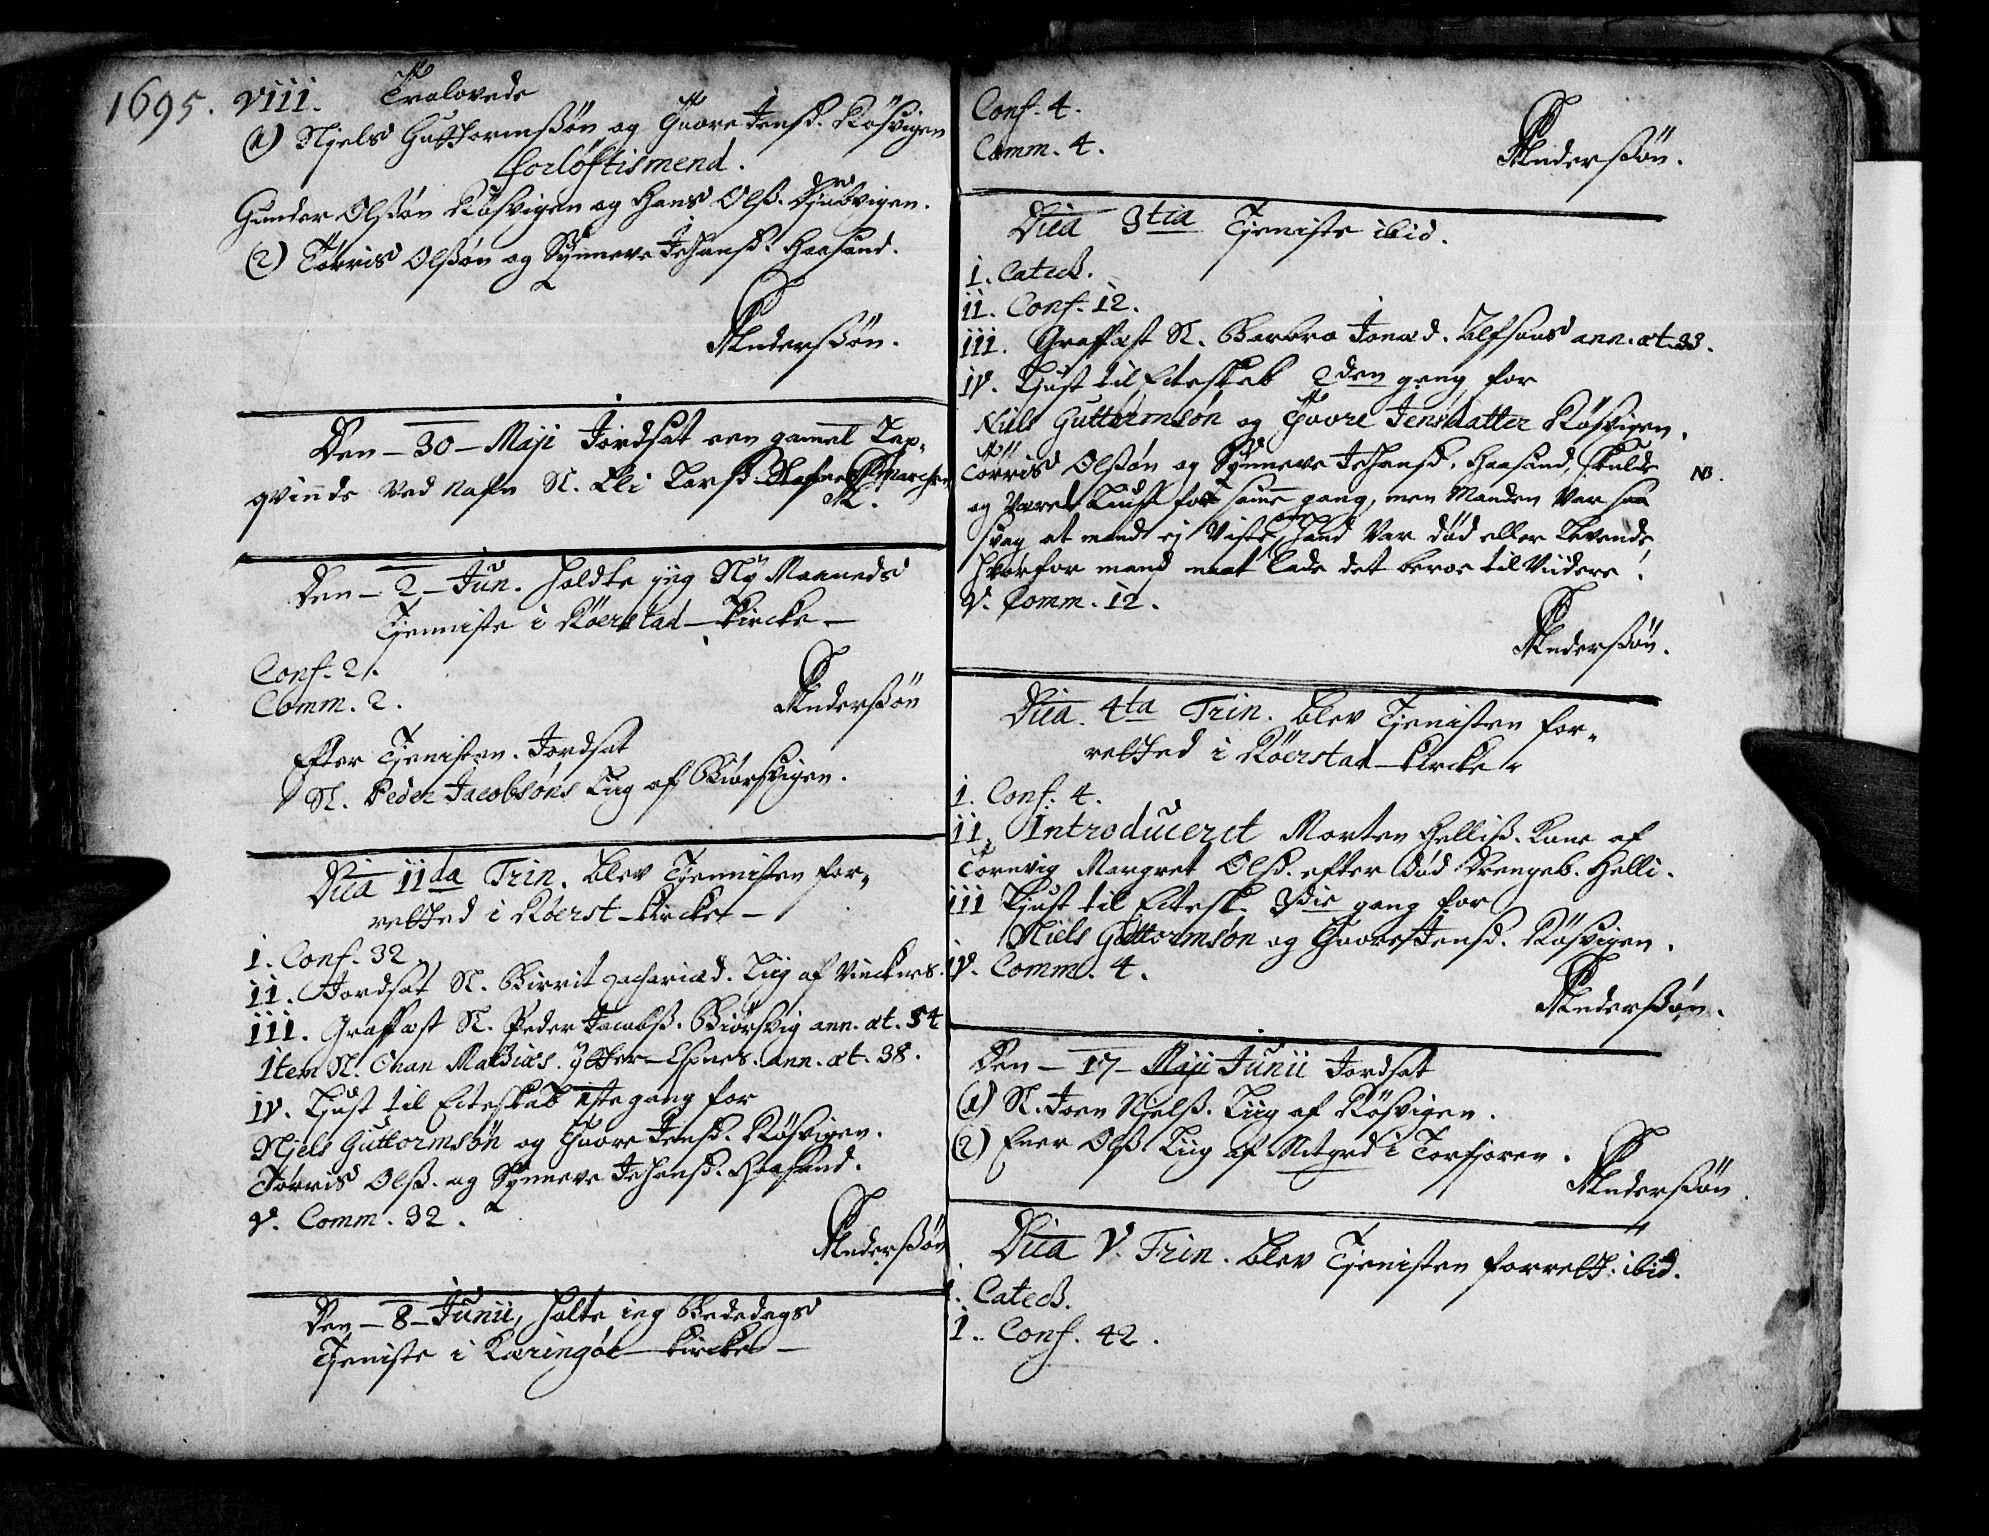 1695. VIII. Trolovede
(1) Njels Guttormssön og Guore Jensd. Rösvigen
forlöftismend.
Gunder Olssön Rösvigen og Hans Olss.
(2) Törris Olssön og Synneve Johansd. Haasund.
Anderssön.
Den - 30 - Maji Jordsat een gamel Lap-
qvinde ved nafn S. Eli Larsd.
Den - 2 - Jun. holdte jeg Ny Maaneds
Tjenniste i Röerstad - Kircke -
Conf. 2.
Comm. 2.
Anderssön
Efter Tjenisten. Jordsat
S. Peder Jacobsöns Liig af Biörsvigen.
Dica IIda Trin. blev Tjennisten for-
retted i Röerst - Kircke -
I. Conf. 32.
II. Jordsat S. Birrit Zachariæd. Liig af Vincknes.
III. Graffæst S. Peder Jacobss. Biörsvig ann. æt. 54
Item S. Ytter - ann. æt. 38.
IV. Liust til Ecteskab 1ste gang for
Njels Guttormsön og Guore Jensd. Rösvigen.
Törris Olss. og Synneve Johansd. Haasund.
V. Comm. 32.
Anderssön
Den - 8 - Junii, holte ieg Bededags
Tjeniste i Kæringöe - Kircke -
Conf. 4.
Comm. 4.
Anderssön.
Dica 3tia Tjeniste ibid.
I. Catech.
II. Conf. 12.
III. Graffæst S. Barbra Jonæd. ann. æt. 33.
IV. Liust til Ecteskab 2den gang for
Niels Guttormsön og Guore Jensdatter Rösvigen.
Törris Olssön og Synneve Johansd. Haasund, skulde NB.
og været Liust for samme gang, men Manden var saa
svag at mand ej viste om hand var död eller Levende
hvorfor mand maat lade det beroe til Viidere.
V. Comm. 12.
Anderssön.
Dica. 4ta Trin. blev Tjenisten for-
retted i Röerstad - Kircke
I. Conf: 4.
II. Introduceret Morten Helliss. Kone af
Torrvig Margret Olsd. efter död Drengeb. Helli.
III Liust til Ectesk. 3die gang for
Niels Guttormsön og Guore Jensd. Rösvigen.
IV. Comm. 4.
Anderssön.
Den - 17 - Maji Junii Jordsat
(1) S. Joen Njelss. Liig af Rösvigen.
(2) Ener Olss. Liig af Mitgrd i Torfioren.
Anderssön.
Dica V. Trin. blev Tjenisten forrett. ibid.
I. Catech.
I. Conf. 42.